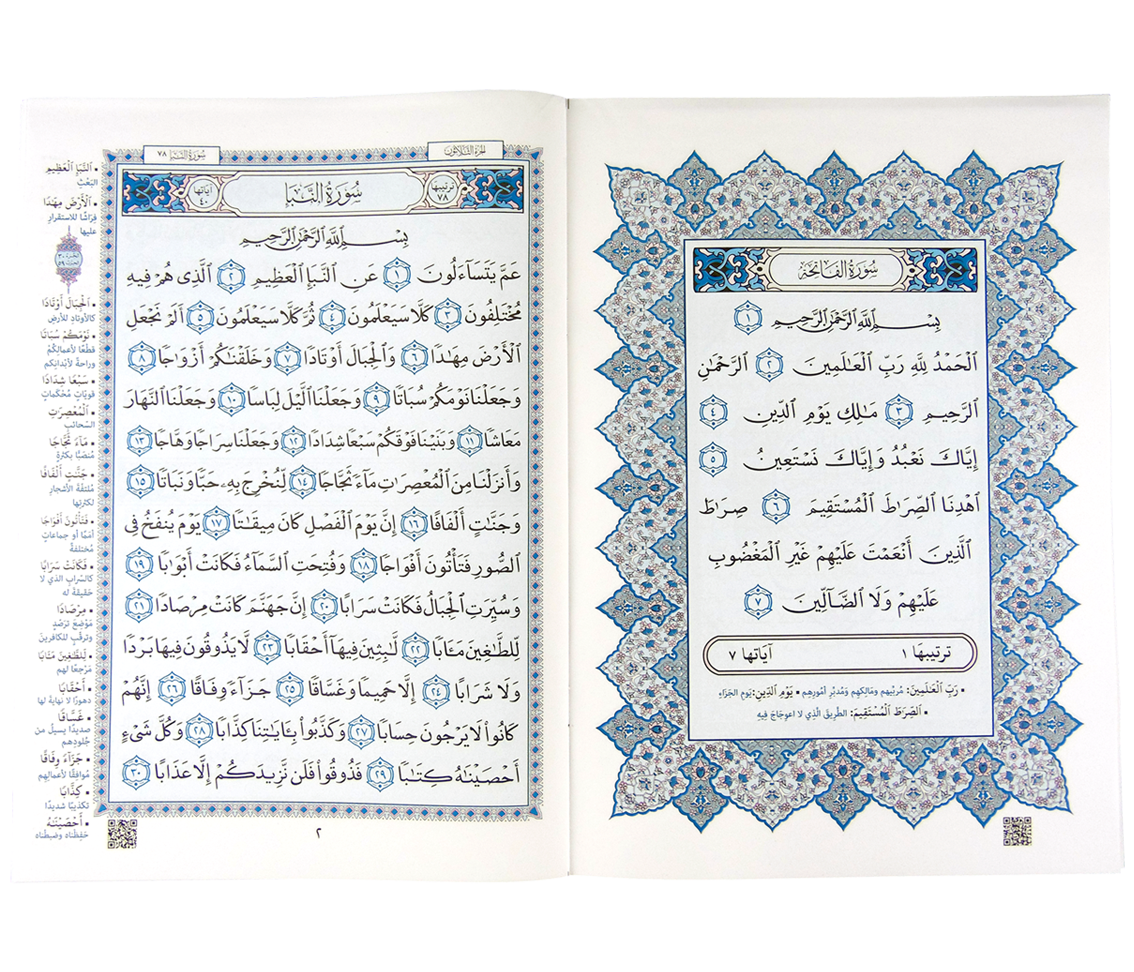 سُورَةُ الْفَاتِحَةِ
بِسْمِ ٱللَّهِ ٱلرَّحْمَٰنِ ٱلرَّحِيمِ ١
ٱلْحَمْدُ لِلَّهِ رَبِّ ٱلْعَٰلَمِينَ ٢ ٱلرَّحْمَٰنِ
ٱلرَّحِيمِ ٣ مَٰلِكِ يَوْمِ ٱلدِّينِ ٤
إِيَّاكَ نَعْبُدُ وَإِيَّاكَ نَسْتَعِينُ ٥
ٱهْدِنَا ٱلصِّرَٰطَ ٱلْمُسْتَقِيمَ ٦ صِرَٰطَ
ٱلَّذِينَ أَنْعَمْتَ عَلَيْهِمْ غَيْرِ ٱلْمَغْضُوبِ
عَلَيْهِمْ وَلَا ٱلضَّآلِّينَ ٧
ترتيبها ١ آياتها ٧
• رَبِّ ٱلْعَٰلَمِينَ: مُربِّيهم ومَالِكِهم ومُدبِّر أمُورِهِم • يَوْمِ ٱلدِّينِ: يَومِ الجَزَاءِ
• ٱلصِّرَٰطَ ٱلْمُسْتَقِيمَ: الطَّرِيقَ الَّذِي لا اعوِجَاجَ فِيهِ
الجزء الثلاثون سُورَةُ النَّبَإِ ٧٨
ترتيبها ٧٨ سُورَةُ النَّبَإِ آياتها ٤٠
بِسْمِ ٱللَّهِ ٱلرَّحْمَٰنِ ٱلرَّحِيمِ
عَمَّ يَتَسَآءَلُونَ ١ عَنِ ٱلنَّبَإِ ٱلْعَظِيمِ ٢ ٱلَّذِى هُمْ فِيهِ
مُخْتَلِفُونَ ٣ كَلَّا سَيَعْلَمُونَ ٤ ثُمَّ كَلَّا سَيَعْلَمُونَ ٥ أَلَمْ نَجْعَلِ
ٱلْأَرْضَ مِهَٰدًا ٦ وَٱلْجِبَالَ أَوْتَادًا ٧ وَخَلَقْنَٰكُمْ أَزْوَٰجًا ٨
وَجَعَلْنَا نَوْمَكُمْ سُبَاتًا ٩ وَجَعَلْنَا ٱلَّيْلَ لِبَاسًا ١٠ وَجَعَلْنَا ٱلنَّهَارَ
مَعَاشًا ١١ وَبَنَيْنَا فَوْقَكُمْ سَبْعًا شِدَادًا ١٢ وَجَعَلْنَا سِرَاجًا وَهَّاجًا ١٣
وَأَنزَلْنَا مِنَ ٱلْمُعْصِرَٰتِ مَآءً ثَجَّاجًا ١٤ لِّنُخْرِجَ بِهِۦ حَبًّا وَنَبَاتًا ١٥
وَجَنَّٰتٍ أَلْفَافًا ١٦ إِنَّ يَوْمَ ٱلْفَصْلِ كَانَ مِيقَٰتًا ١٧ يَوْمَ يُنفَخُ فِى
ٱلصُّورِ فَتَأْتُونَ أَفْوَاجًا ١٨ وَفُتِحَتِ ٱلسَّمَآءُ فَكَانَتْ أَبْوَٰبًا ١٩
وَسُيِّرَتِ ٱلْجِبَالُ فَكَانَتْ سَرَابًا ٢٠ إِنَّ جَهَنَّمَ كَانَتْ مِرْصَادًا ٢١
لِّلطَّٰغِينَ مَـَٔابًا ٢٢ لَّٰبِثِينَ فِيهَآ أَحْقَابًا ٢٣ لَّا يَذُوقُونَ فِيهَا بَرْدًا
وَلَا شَرَابًا ٢٤ إِلَّا حَمِيمًا وَغَسَّاقًا ٢٥ جَزَآءً وِفَاقًا ٢٦ إِنَّهُمْ
كَانُوا۟ لَا يَرْجُونَ حِسَابًا ٢٧ وَكَذَّبُوا۟ بِـَٔايَٰتِنَا كِذَّابًا ٢٨ وَكُلَّ شَىْءٍ
أَحْصَيْنَٰهُ كِتَٰبًا ٢٩ فَذُوقُوا۟ فَلَن نَّزِيدَكُمْ إِلَّا عَذَابًا ٣٠
• ٱلنَّبَإِ ٱلْعَظِيمِ
البَعْثِ
• ٱلْأَرْضَ مِهَٰدًا
فِرَاشًا للاستقرارِ
عليها
• ٱلْجِبَالَ أَوْتَادًا
كالأوتادِ للأرضِ
• نَوْمَكُمْ سُبَاتًا
قَطْعًا لأعمالِكُمْ
وراحةً لأبدانِكم
• سَبْعًا شِدَادًا
قويَّاتٍ مُحْكَمَاتٍ
• ٱلْمُعْصِرَٰتِ
السَّحائبِ
• مَآءً ثَجَّاجًا
مُنصَبًّا بكثرةٍ
• جَنَّٰتٍ أَلْفَافًا
مُلتفَّةَ الأشجارِ
لكثرتِها
• فَتَأْتُونَ أَفْوَاجًا
أُممًا أو جماعاتٍ
مُختلفةً
• فَكَانَتْ سَرَابًا
كالسَّرابِ الذي لا
حقيقةَ له
• مِرْصَادًا
مَوْضِعَ تَرَصُّدٍ
وترقُّبٍ للكافرين
• لِّلطَّٰغِينَ مَـَٔابًا
مَرْجِعًا لهم
• أَحْقَابًا
دهورًا لا نهايةَ لها
• غَسَّاقًا
صديدًا يسيلُ من
جُلودِهم
• جَزَآءً وِفَاقًا
مُوافِقًا لأعمالِهم
• كِذَّابًا
تكذيبًا شديدًا
• أَحْصَيْنَٰهُ
حَفِظْناه وضبطناه
٢